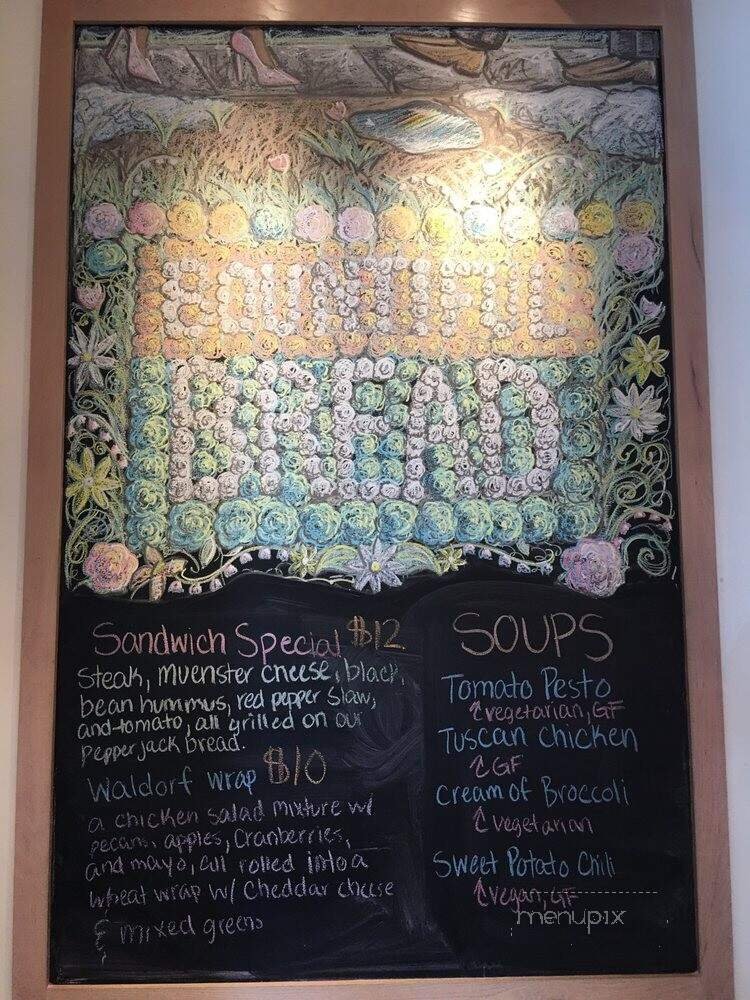 BOUNTIFUL
BREAD
Sandwich Special $12
Steak, muenster cheese, black
bean hummus, red pepper slaw,
and tomato, all grilled on our
pepper jack bread.
Waldorf wrap $10
a chicken salad mixture w/
pecans, apples, Cranberries,
and mayo, all rolled into a
wheat wrap w/ Cheddar cheese
& mixed greens
SOUPS
Tomato Pesto
↑ vegetarian, GF
Tuscan chicken
↑ GF
Cream of Broccoli
↑ vegetarian
Sweet Potato Chili
↑ vegan, GF
menupix